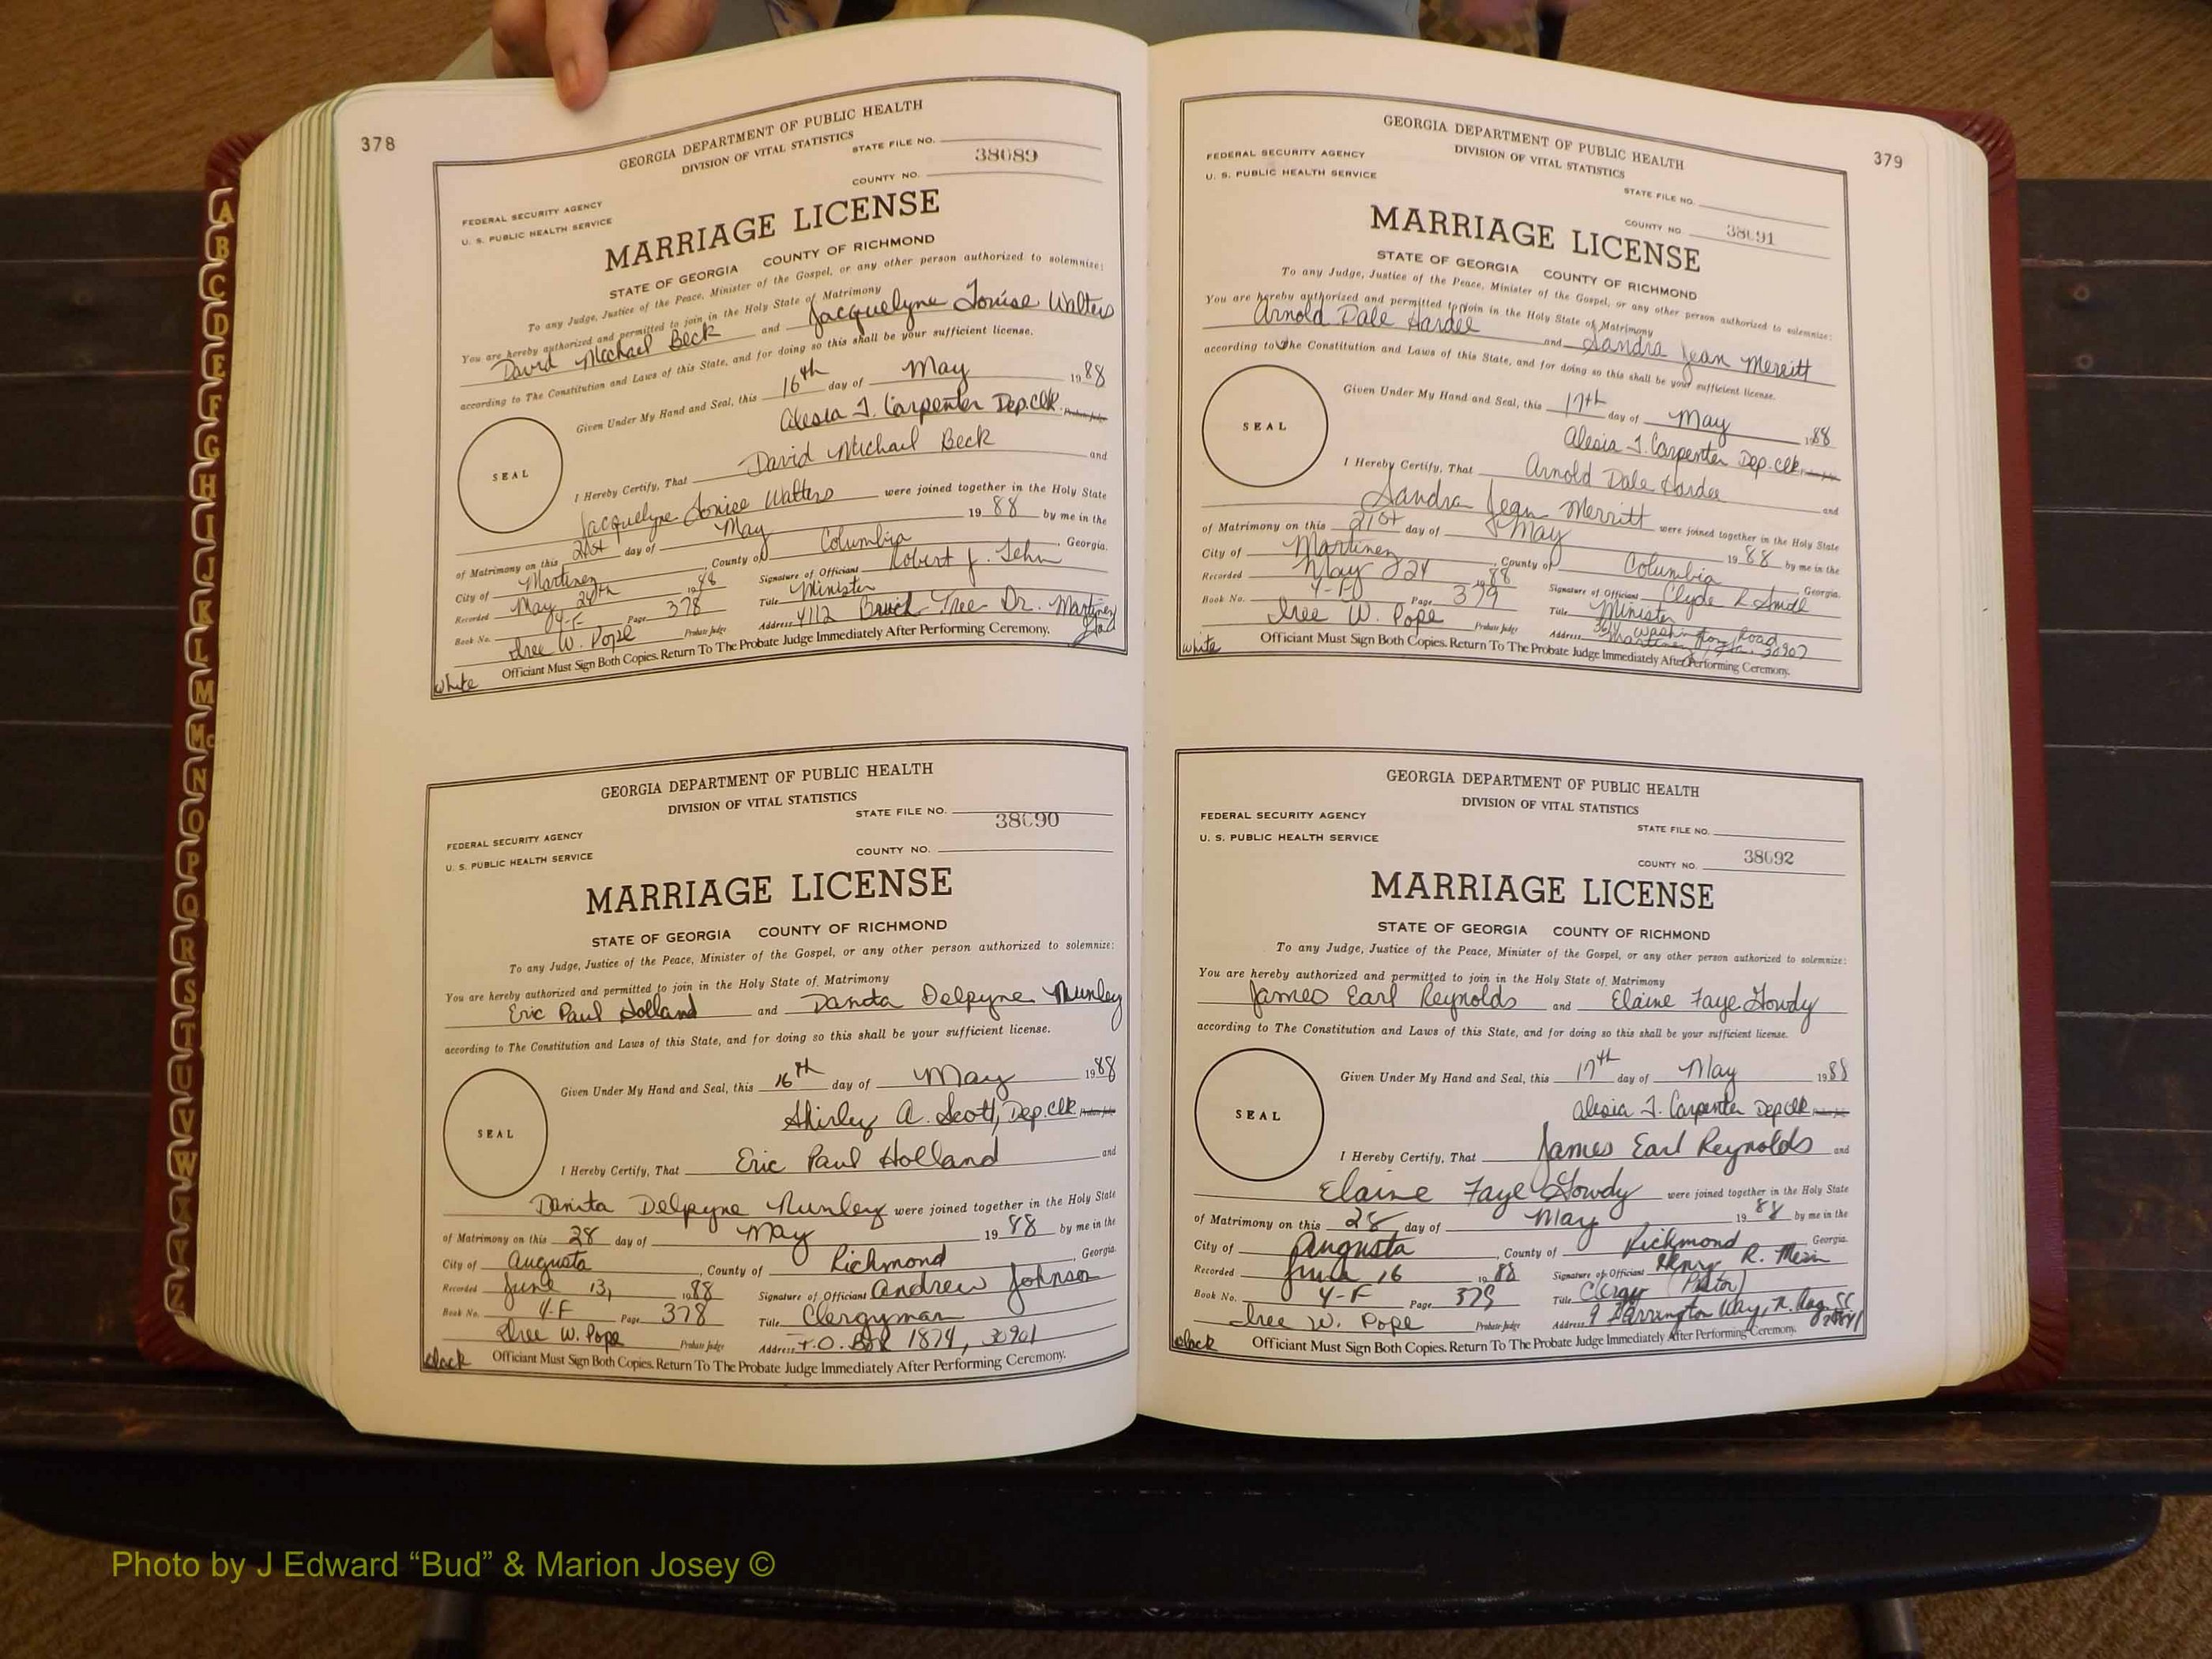 378
GEORGIA DEPARTMENT OF PUBLIC HEALTH
DIVISION OF VITAL STATISTICS
STATE FILE NO.
38089
COUNTY NO.
FEDERAL SECURITY AGENCY
U. S. PUBLIC HEALTH SERVICE
MARRIAGE LICENSE
STATE OF GEORGIA COUNTY OF RICHMOND
To any Judge, Justice of the Peace, Minister of the Gospel, or any other person authorized to solemnize:
You are hereby authorized and permitted to join in the Holy State of Matrimony
David Michael Beck and Jacquelyne Louise Walters
according to The Constitution and Laws of this State, and for doing so this shall be your sufficient license.
Given Under My Hand and Seal, this 16th day of May 1988
Alesia J. Carpenter Dep.Clk. Probate Judge
SEAL
I Hereby Certify, That David Michael Beck and
Jacquelyne Louise Walters were joined together in the Holy State
of Matrimony on this 21st day of May 1988 by me in the
City of Martinez, County of Columbia, Georgia.
Recorded May 24th 1988 Signature of Officiant Robert J.
Book No. 4-F Page 378 Title Minister
Iree W. Pope Probate Judge Address 4112 Tree Dr. Martinez
Officiant Must Sign Both Copies. Return To The Probate Judge Immediately After Performing Ceremony.
White
GEORGIA DEPARTMENT OF PUBLIC HEALTH
DIVISION OF VITAL STATISTICS
STATE FILE NO. 38090
FEDERAL SECURITY AGENCY
U. S. PUBLIC HEALTH SERVICE
COUNTY NO.
MARRIAGE LICENSE
STATE OF GEORGIA COUNTY OF RICHMOND
To any Judge, Justice of the Peace, Minister of the Gospel, or any other person authorized to solemnize:
You are hereby authorized and permitted to join in the Holy State of Matrimony
Eric Paul Holland and Danita Delpyne Nunley
according to The Constitution and Laws of this State, and for doing so this shall be your sufficient license.
Given Under My Hand and Seal, this 16th day of May 1988
Shirley A. Scott, Dep.Clk. Probate Judge
SEAL
I Hereby Certify, That Eric Paul Holland and
Danita Delpyne Nunley were joined together in the Holy State
of Matrimony on this 28 day of May 1988 by me in the
City of Augusta, County of Richmond, Georgia.
Recorded June 13, 1988 Signature of Officiant Andrew Johnson
Book No. 4-F Page 378 Title Clergyman
Iree W. Pope Probate Judge Address P.O. Box 1874, 30901
Officiant Must Sign Both Copies. Return To The Probate Judge Immediately After Performing Ceremony.
black
379
GEORGIA DEPARTMENT OF PUBLIC HEALTH
DIVISION OF VITAL STATISTICS
FEDERAL SECURITY AGENCY
U. S. PUBLIC HEALTH SERVICE
STATE FILE NO.
COUNTY NO. 38091
MARRIAGE LICENSE
STATE OF GEORGIA COUNTY OF RICHMOND
To any Judge, Justice of the Peace, Minister of the Gospel, or any other person authorized to solemnize:
You are hereby authorized and permitted to join in the Holy State of Matrimony
Arnold Dale Hardee and Sandra Jean Merritt
according to The Constitution and Laws of this State, and for doing so this shall be your sufficient license.
Given Under My Hand and Seal, this 17th day of May 1988
Alesia J. Carpenter Dep.Clk. Probate Judge
SEAL
I Hereby Certify, That Arnold Dale Hardee and
Sandra Jean Merritt were joined together in the Holy State
of Matrimony on this 21st day of May 1988 by me in the
City of Martinez, County of Columbia, Georgia.
Recorded May 24 1988 Signature of Officiant Clyde R.
Book No. 4-F Page 379 Title Minister
Iree W. Pope Probate Judge Address Washington Road
Martinez, Ga. 30907
Officiant Must Sign Both Copies. Return To The Probate Judge Immediately After Performing Ceremony.
white
GEORGIA DEPARTMENT OF PUBLIC HEALTH
DIVISION OF VITAL STATISTICS
FEDERAL SECURITY AGENCY
U. S. PUBLIC HEALTH SERVICE
STATE FILE NO.
COUNTY NO. 38092
MARRIAGE LICENSE
STATE OF GEORGIA COUNTY OF RICHMOND
To any Judge, Justice of the Peace, Minister of the Gospel, or any other person authorized to solemnize:
You are hereby authorized and permitted to join in the Holy State of Matrimony
James Earl Reynolds and Elaine Faye Gowdy
according to The Constitution and Laws of this State, and for doing so this shall be your sufficient license.
Given Under My Hand and Seal, this 17th day of May 1988
Alesia J. Carpenter Dep Clk Probate Judge
SEAL
I Hereby Certify, That James Earl Reynolds and
Elaine Faye Gowdy were joined together in the Holy State
of Matrimony on this 28 day of May 1988 by me in the
City of Augusta, County of Richmond, Georgia.
Recorded June 16 1988 Signature of Officiant Henry R.
Book No. 4-F Page 379 Title Clergy (Pastor)
Iree W. Pope Probate Judge Address 9 Farrington Way, N. Aug. SC
Officiant Must Sign Both Copies. Return To The Probate Judge Immediately After Performing Ceremony.
black
A
B
C
D
E
F
G
H
I
J
K
L
M
Mc
N
O
P
Q
R
S
T
U
V
W
X
Y
Z
Photo by J Edward “Bud” & Marion Josey ©